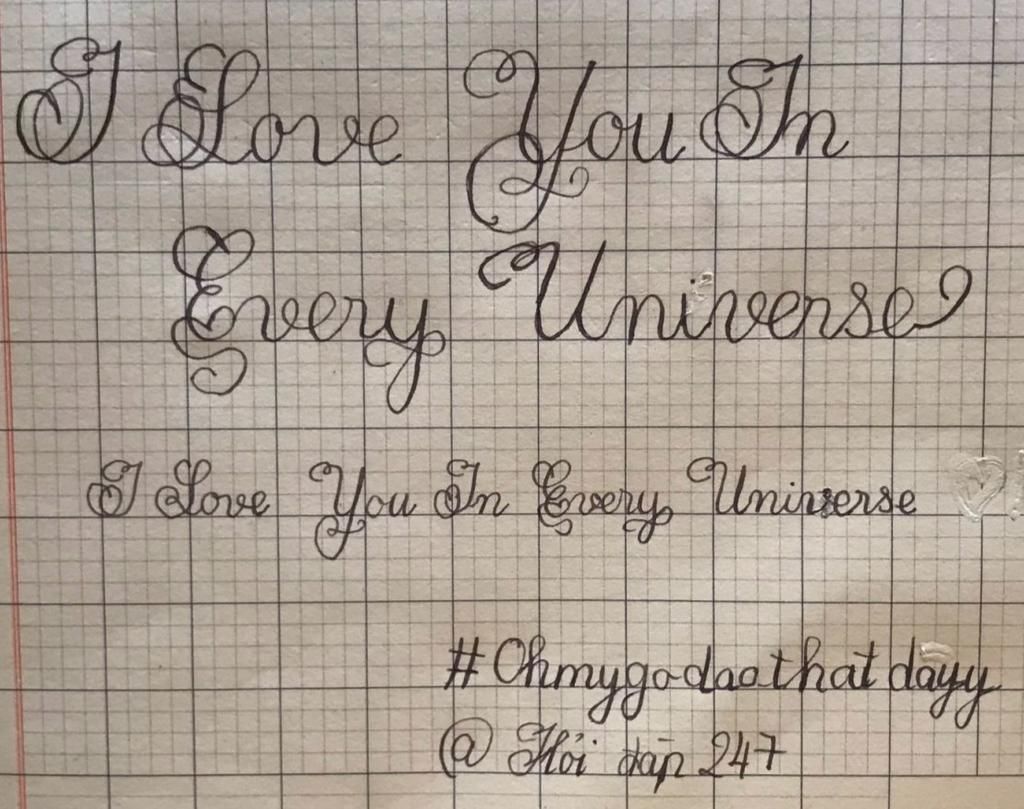 I Love You In
Every Universe
I Love You In Every Universe
#Ohmygodaothatdayy
@ Hỏi đáp 247